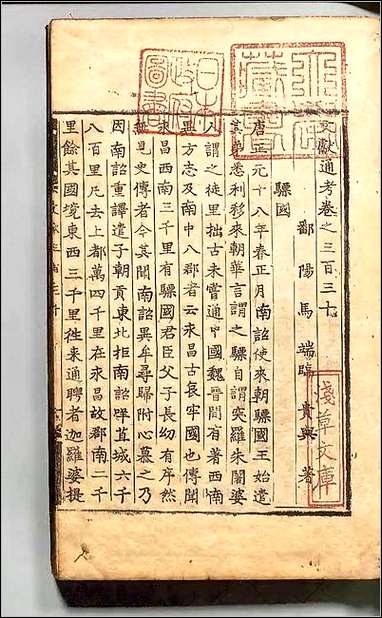 文獻通考卷之三百三十
鄱陽馬端臨貴與著
驃國
唐正元十八年春正月南詔使來朝驃國王始遣
其弟悉利移來朝華言謂之驃自謂突羅朱闍婆
人謂之徒里拙古未嘗通中國魏晉間有著西南
異方志及南中八郡者云永昌古哀牢國也傳聞
永昌西南三千里有驃國君臣父子長幼有序然
無見史傳者今其聞南詔異牟尋歸附心慕之乃
因南詔重譯遣子朝貢東北拒南詔咩苴城六千
八百里凡去上都萬四千里在永昌故郡南二千
里餘其國境東西三千里徃來通聘者迦羅婆提
淺草文庫
日本政府圖書